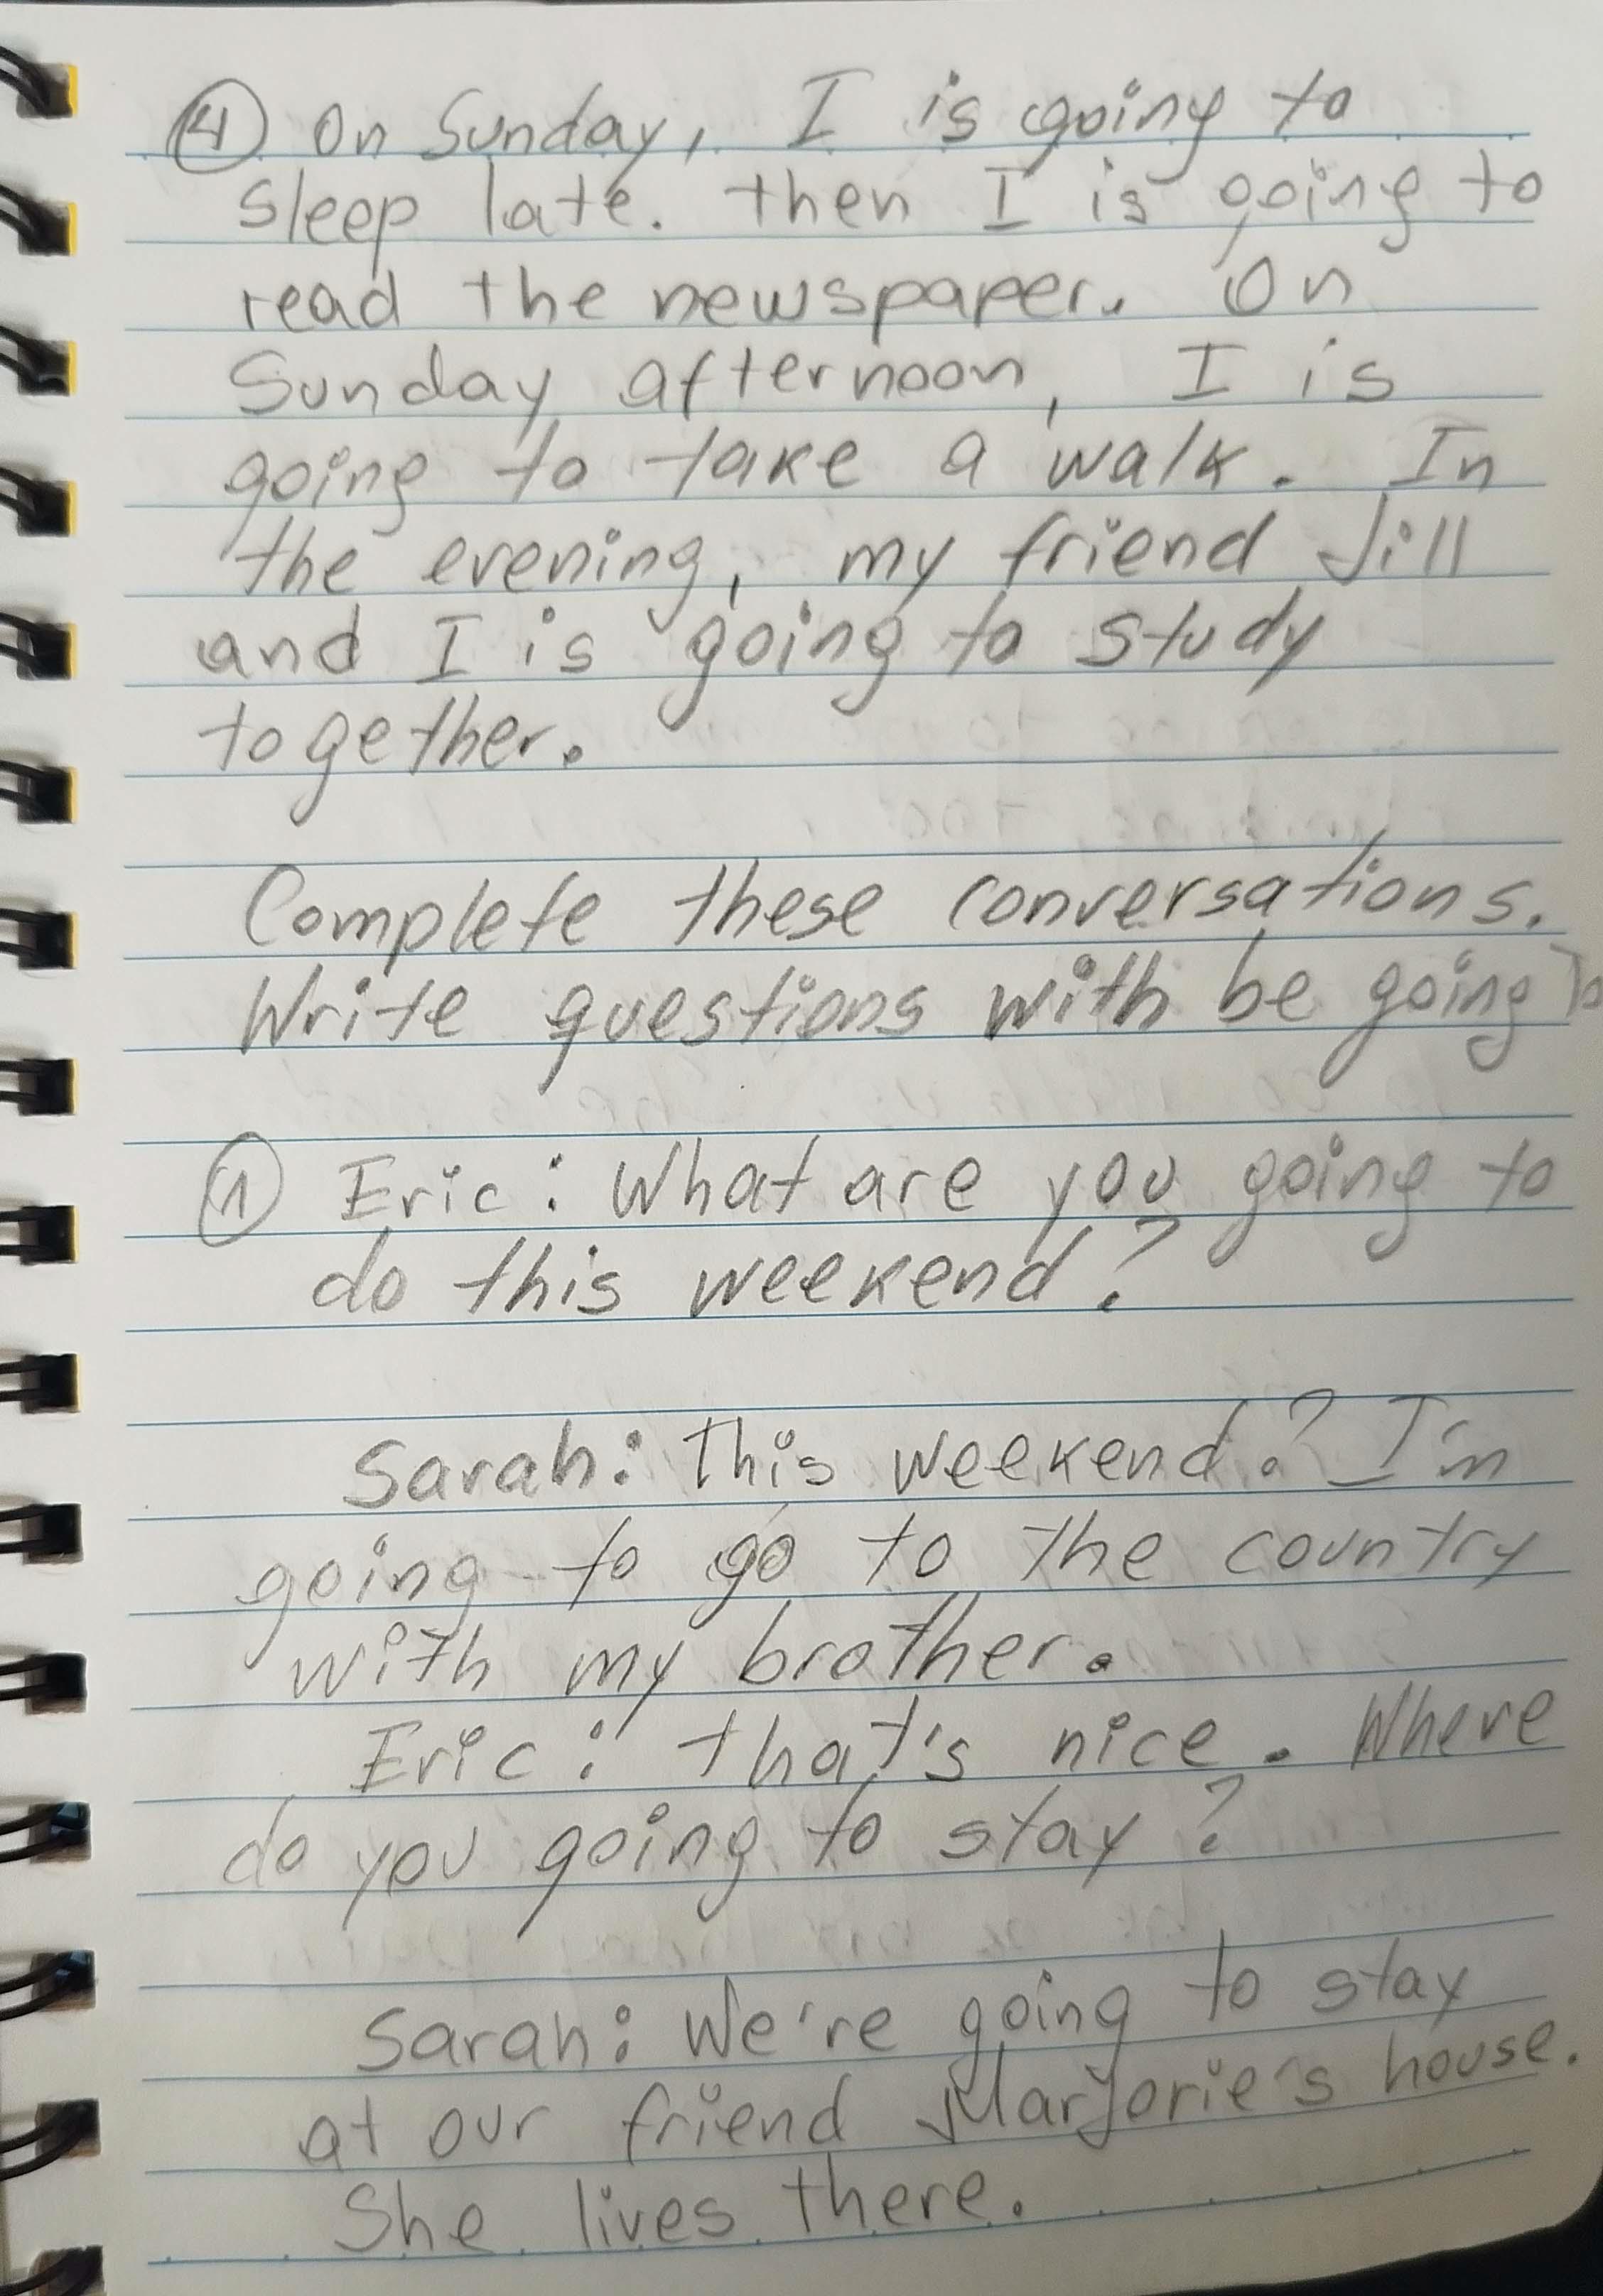 ④ On Sunday, I is going to
sleep late. then I is going to
read the newspaper. On
Sunday afternoon, I is
going to take a walk. In
the evening, my friend Jill
and I is going to study
together.
Complete these conversations.
Write questions with be going to
① Eric: What are you going to
do this weekend?
Sarah: This weekend? I'm
going to go to the country
with my brother.
Eric: that's nice. Where
do you going to stay?
Sarah: We're going to stay
at our friend Marjorie's house.
She lives there.